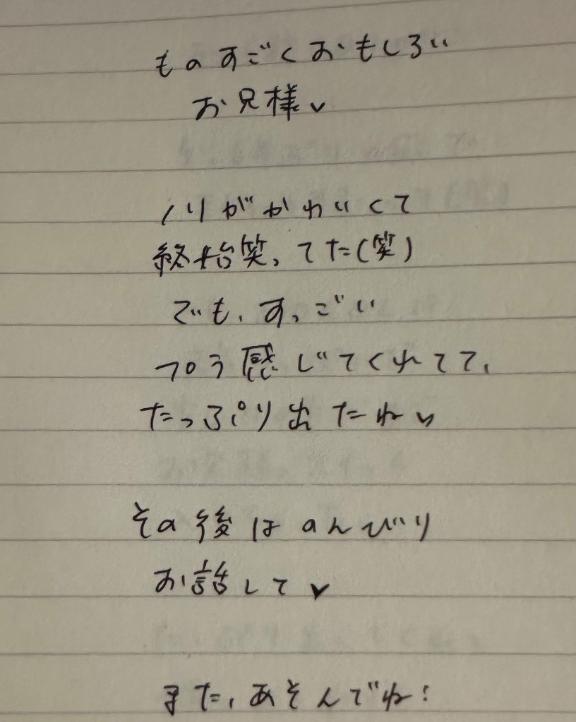 ものすごくおもしろい
お兄様♥
ノリがかわいくて
終始笑ってた(笑)
でも、すっごい
感じてくれてて、
たっぷり出たね♥
その後はのんびり
お話して♥
また、あそんでね!